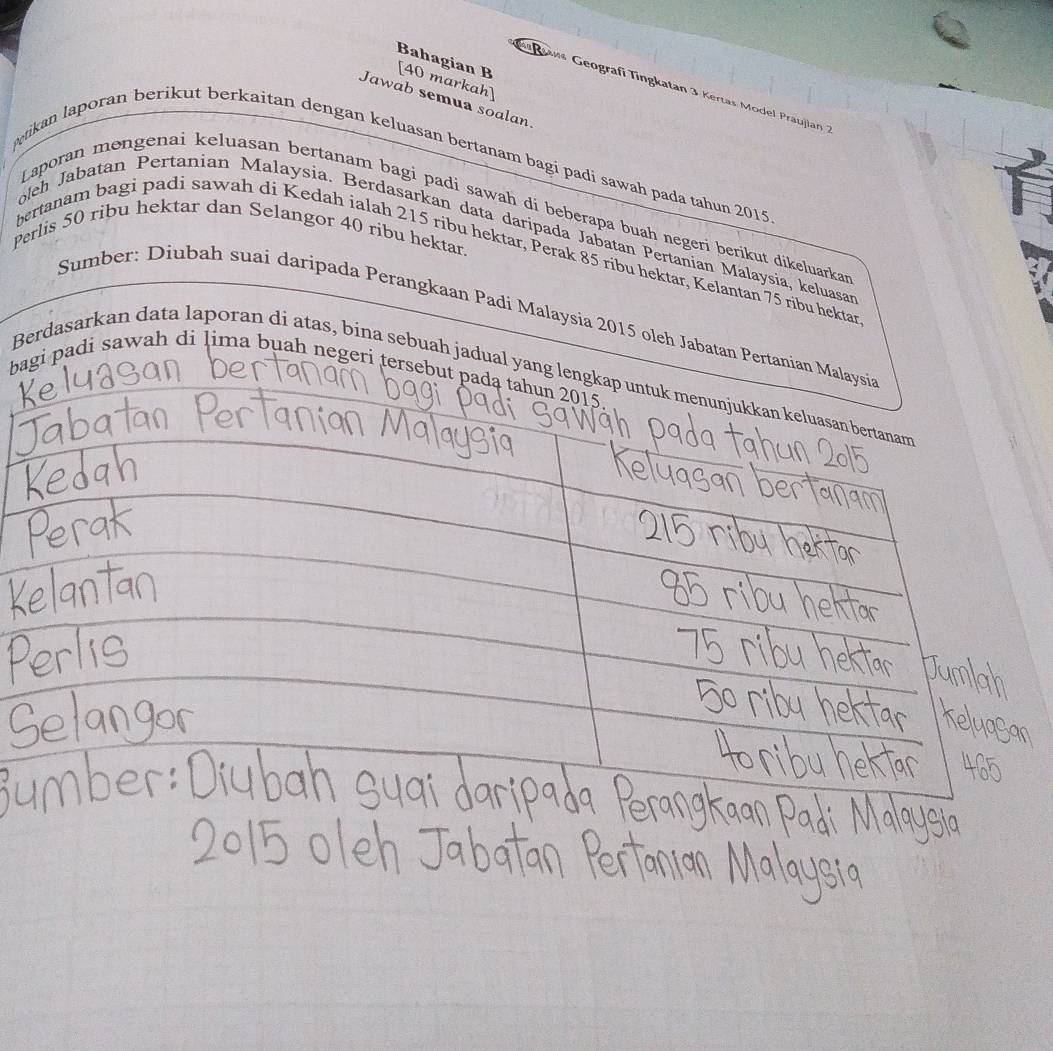 Geografi Tingkatan 3 Kertas Model Praujian 2
Bahagian B
[40 markah]
Jawab semua soalan.
laporan berikut berkaitan dengan keluasan bertanam bagi padi sawah pada tahun 2015.
Laporan mengenai keluasan bertanam bagi padi sawah di beberapa buah negeri berikut dikeluarkan
oleh Jabatan Pertanian Malaysia. Berdasarkan data daripada Jabatan Pertanian Malaysia, keluasan
bertanam bagi padi sawah di Kedah ialah 215 ribu hektar, Perak 85 ribu hektar, Kelantan 75 ribu hektar,
Perlis 50 ribu hektar dan Selangor 40 ribu hektar.
Sumber: Diubah suai daripada Perangkaan Padi Malaysia 2015 oleh Jabatan Pertanian Malaysia
Berdasarkan data laporan di atas, bina sebuah jadual yang lengkap untuk menunjukkan keluasan bertanam
bagi padi sawah di lima buah negeri tersebut pada tahun 2015.
Keluasan bertanam bagi padi sawah pada tahun 2015
Jabatan Pertanian Malaysia Keluasan bertanam
Kedah 215 ribu hektar
Perak 85 ribu hektar
Kelantan 75 ribu hektar
Perlis 50 ribu hektar
Selangor 40 ribu hektar
Jumlah
Keluasan
465
Sumber: Diubah suai daripada Perangkaan Padi Malaysia
2015 oleh Jabatan Pertanian Malaysia